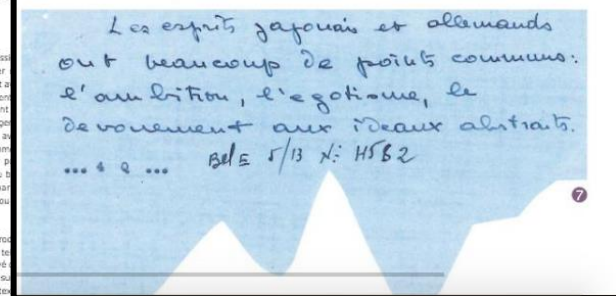 Les esprits japonais et allemands
ont beaucoup de points communs:
l'ambition, l'egotisme, le
devouement aux ideaux abstraits.
5/13 N: H5B2
7